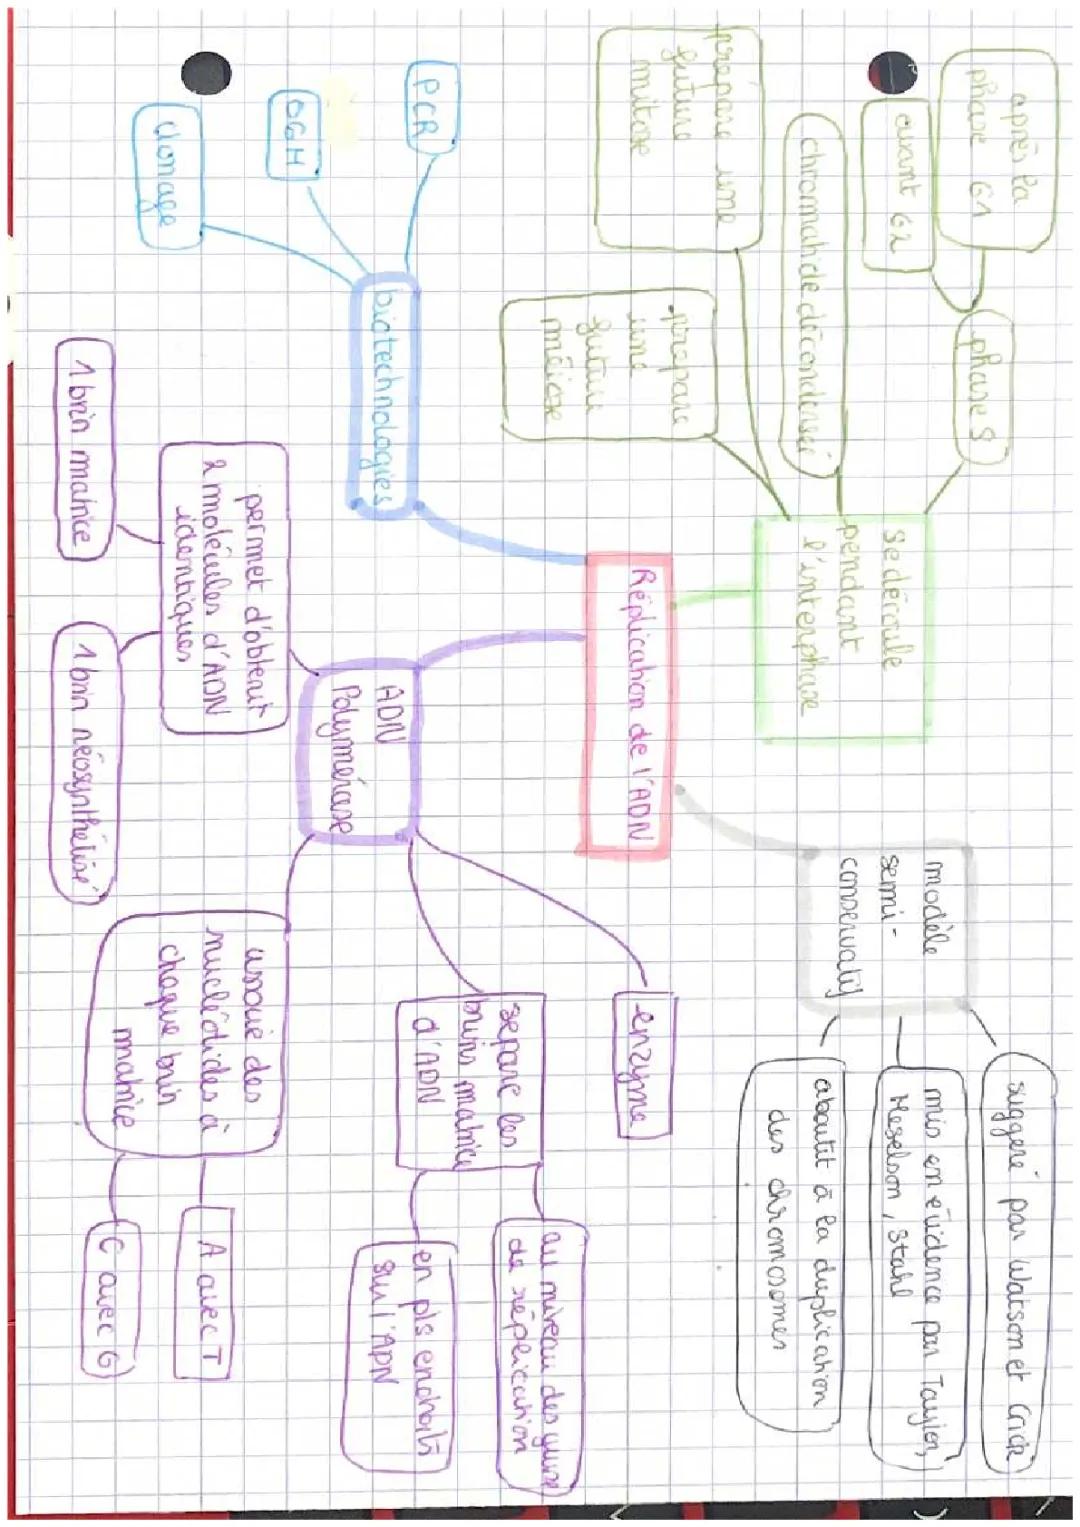 Réplication de l'ADN
se déroule
pendant
l'interphase
phase S
après la
phase G1
avant G2
chrommatide décondensé
prépare une
future
mitose
prepare
une
future
méiose
modèle
semi-
conservatif
suggeré par Watson et Crick
mis en évidence par Taylor,
Meselson, Stahl
aboutit à la duplication
des chromosomes
biotechnologies
PCR
OGM
clonage
ADN
Polymérase
permet d'obtenir
2 molécules d'ADN
identiques
1 brin matrice
1 brin néosynthétisé
enzyme
separe les
brins matrice
d'ADN
au niveau des yeux
de réplication
en pls endroits
sur l'ADN
associe des
nucléotides à
chaque brin
matrice
A avec T
C avec G